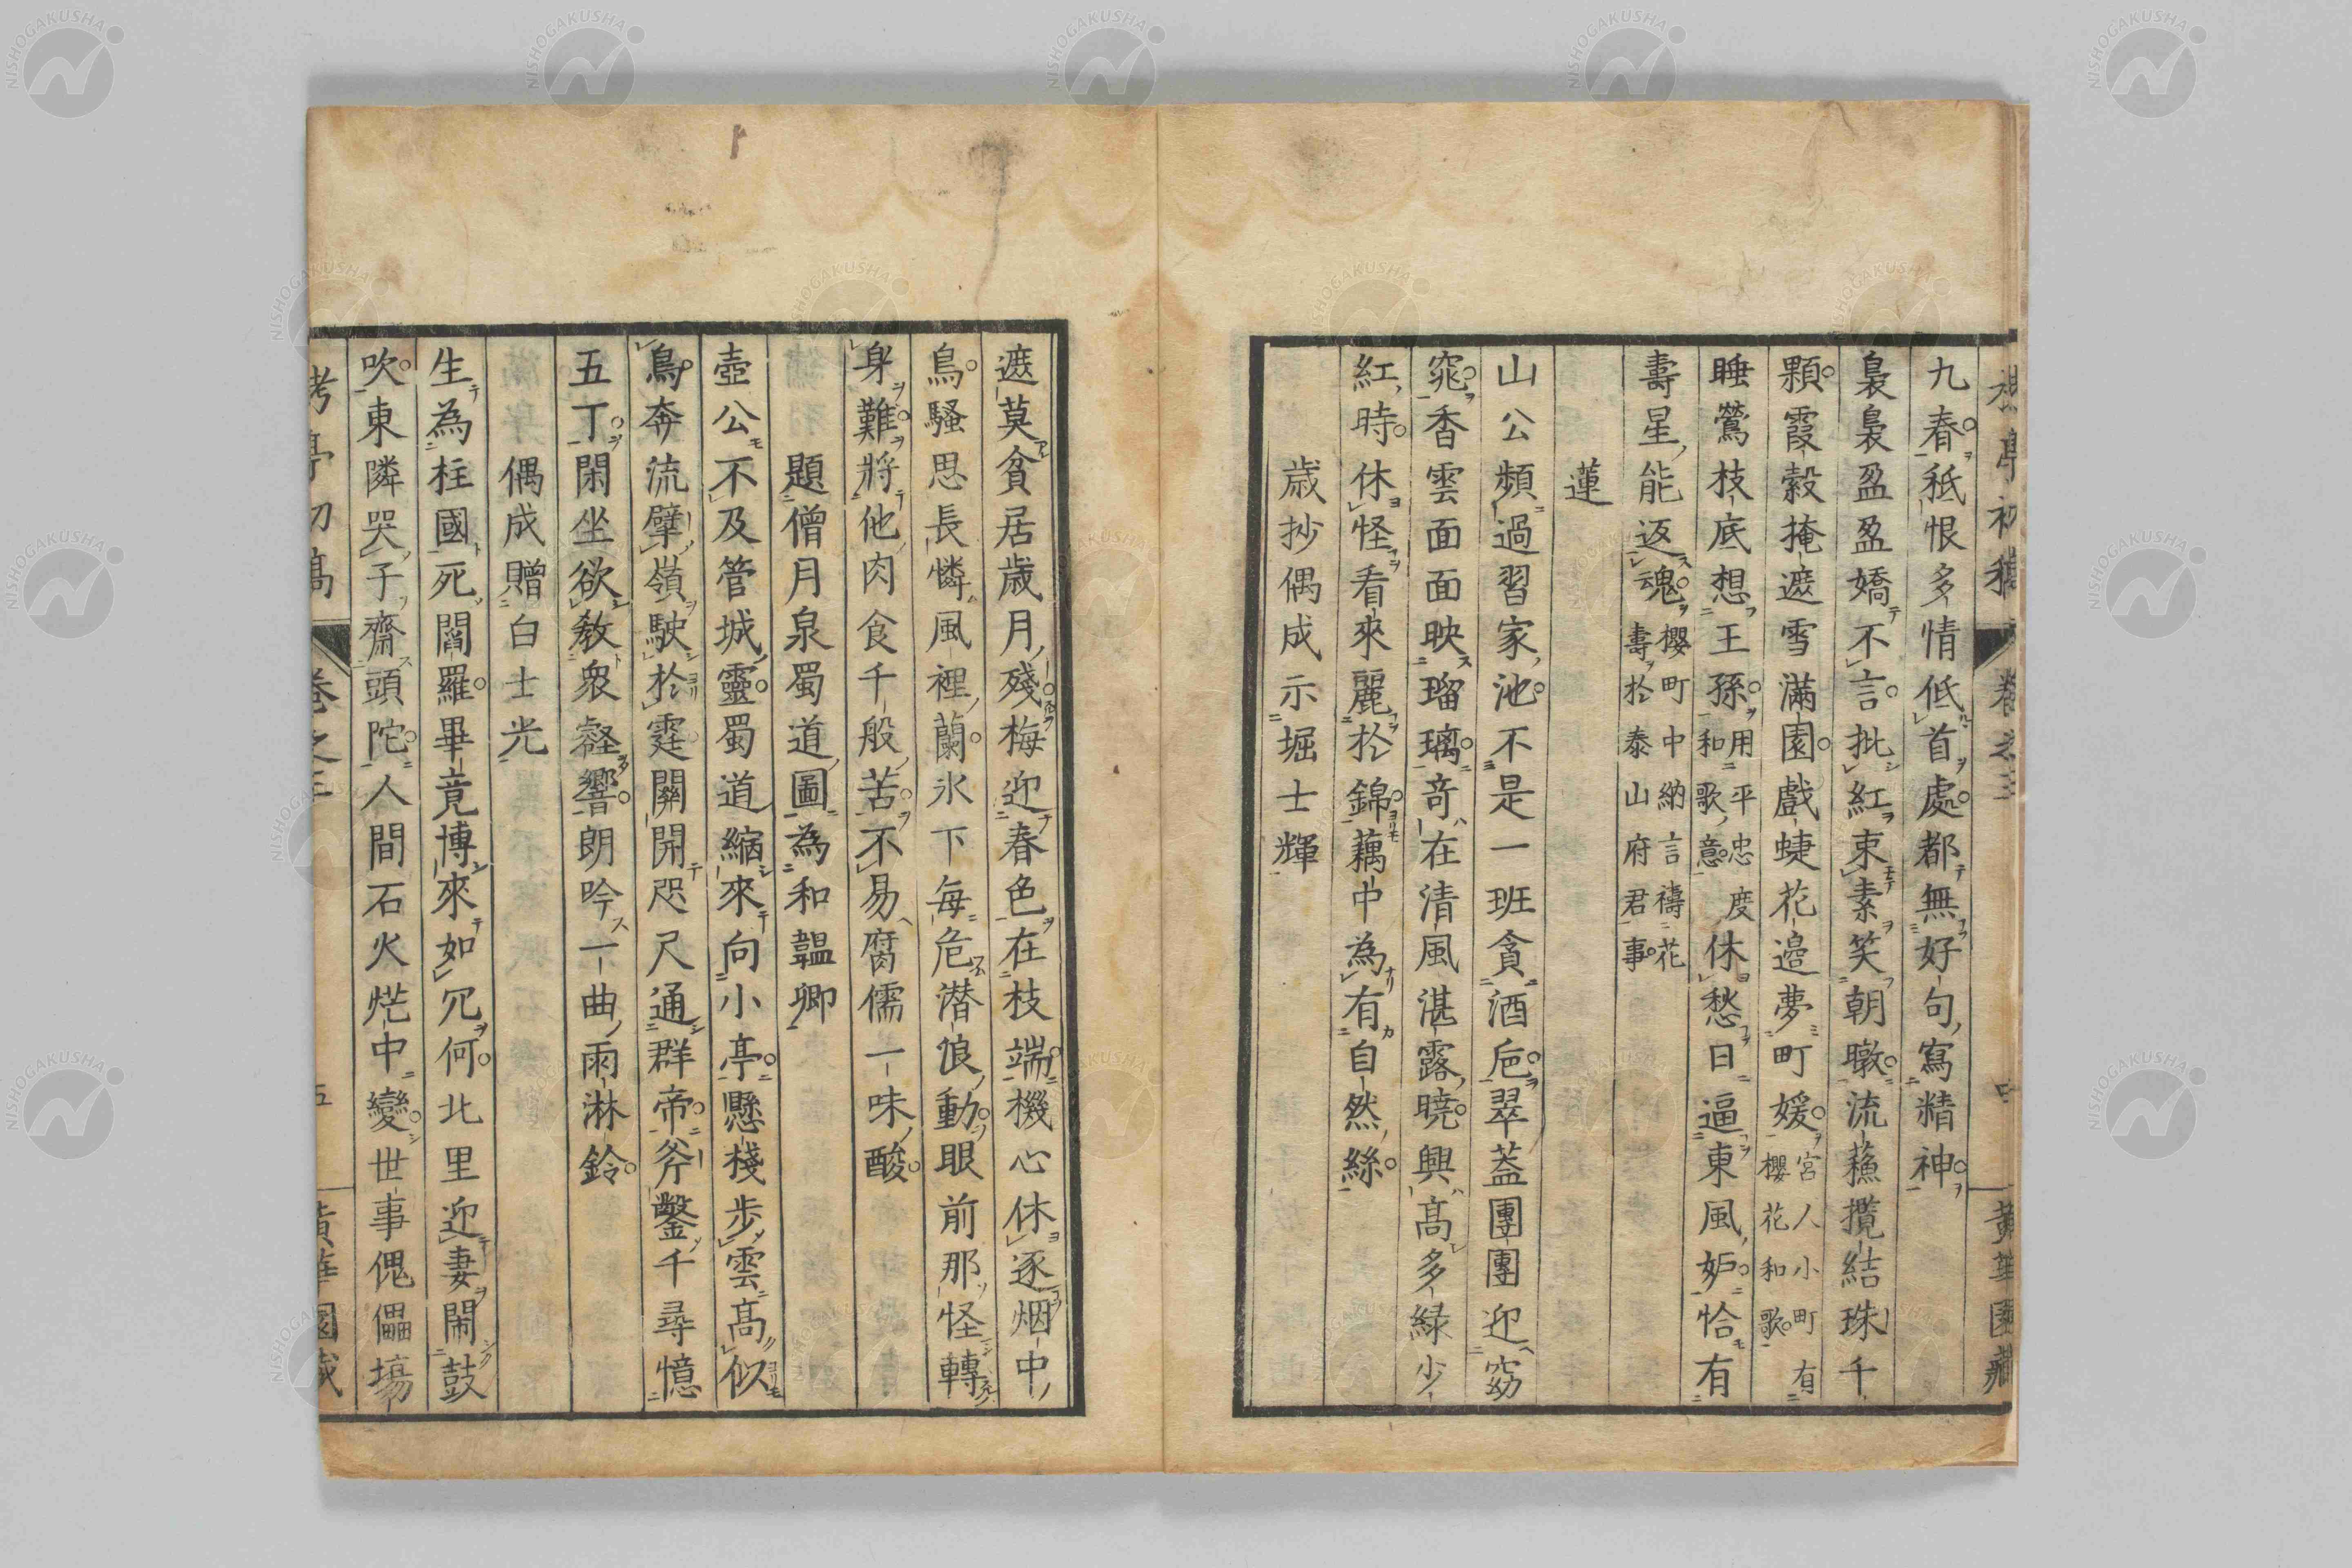 九春秪恨多情低首處都無好句寫精神
裊裊盈盈嬌不言批紅束素笑朝暾流蘓攬結珠千
顆霞縠掩遮雪滿園戲蜨花邉夢町媛宮人小町有櫻花和歌
睡鶯枝底想王孫用平忠度和歌意休愁日逼東風妒恰有
壽星能返魂櫻町中納言禱花壽於泰山府君事
蓮
山公頻過習家池不是一班貪酒巵翠葢團團迎窈
窕香雲面面映瑠璃竒在清風湛露曉興髙多緑少
紅時休怪看來麗於錦藕中為有自然絲
歳抄偶成示堀士輝
遮莫貧居歳月殘梅迎春色在枝端機心休逐烟中
鳥騷思長憐風裡蘭氷下每危潜浪動眼前那怪轉
身難將他肉食千般苦不易腐儒一味酸
題僧月泉蜀道圖為和韞卿
壺公不及管城靈蜀道縮來向小亭懸棧步雲髙似
鳥奔流擘嶺駛於霆關開咫尺通群帝斧鑿千尋憶
五丁閑坐欲教衆壑響朗吟一曲雨淋鈴
偶成贈白士光
生為柱國死閻羅畢竟博來如冗何北里迎妻鬧鼓
吹東隣哭子齋頭陀人間石火熋中變世事傀儡塲
卷之三
五
NISHOGAKUSHA